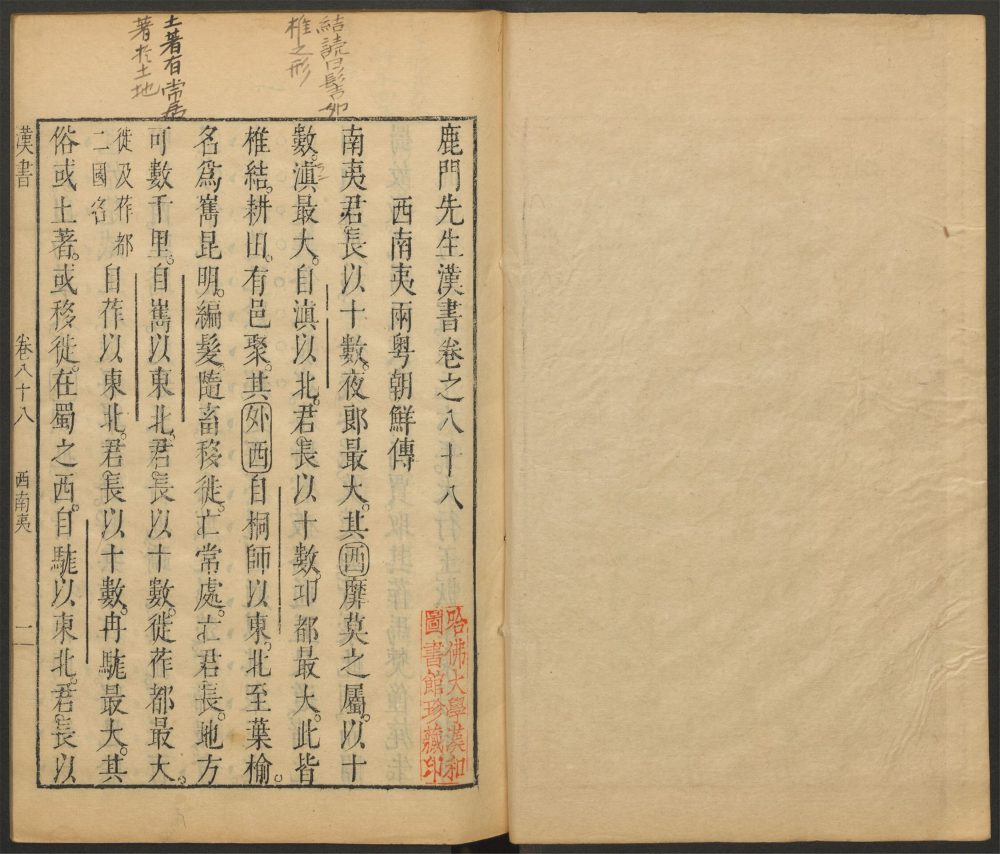 結読曰髻如
椎之形
土著有常居
著於土地
鹿門先生漢書卷之八十八
西南夷兩粤朝鮮傳
南夷君長以十數夜郎最大其西靡莫之屬以十
數滇最大自滇以北君長以十數邛都最大此皆
椎結耕田有邑聚其外西自桐師以東北至葉榆
名爲嶲昆明編髮隨畜移徙亡常處亡君長地方
可數千里自嶲以東北君長以十數徙莋都最大
徙及莋都
二國名
自莋以東北君長以十數冉駹最大其
俗或土著或移徙在蜀之西自駹以東北君長以
漢書
卷八十八
西南夷
一
哈佛大學漢和
圖書館珍藏印